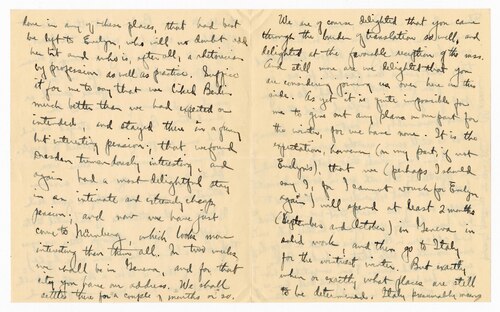 done in any of these places, that had best
be left to Evelyn, who will no doubt add
her bit and who is, after all, a rhetorician
by profession as well as practice. Suffice
it for me to say that we liked Berlin
much better than we had expected or
intended, and stayed there in a
but interesting pension; that we found
Dresden tremendously interesting, and
again had a most delightful stay
in an intimate and extremely cheap
pension; and now we have just
come to Nürnberg, which looks more
interesting than them all. In two weeks
we shall be in Geneva, and for that
city you have our address. We shall
settle there for a couple of months or so.
We are of course delighted that you came
through the burden of translation so well, and
delighted at the favorable reception of the mss.
And still more are we delighted that you
are considering joining us over here on this
side. As yet it is quite impossible for
me to give out any plans on our part for
the winter, for we have none. It is the
expectation, however (on my part, if not
Evelyn's), that we (perhaps I should
say I, for I cannot vouch for Evelyn
again) will spend at least 2 months
(September and October) in Geneva in
solid work, and then go to Italy
for the wintriest winter. But exactly
when or exactly what places are still
to be determined. Italy presumably means